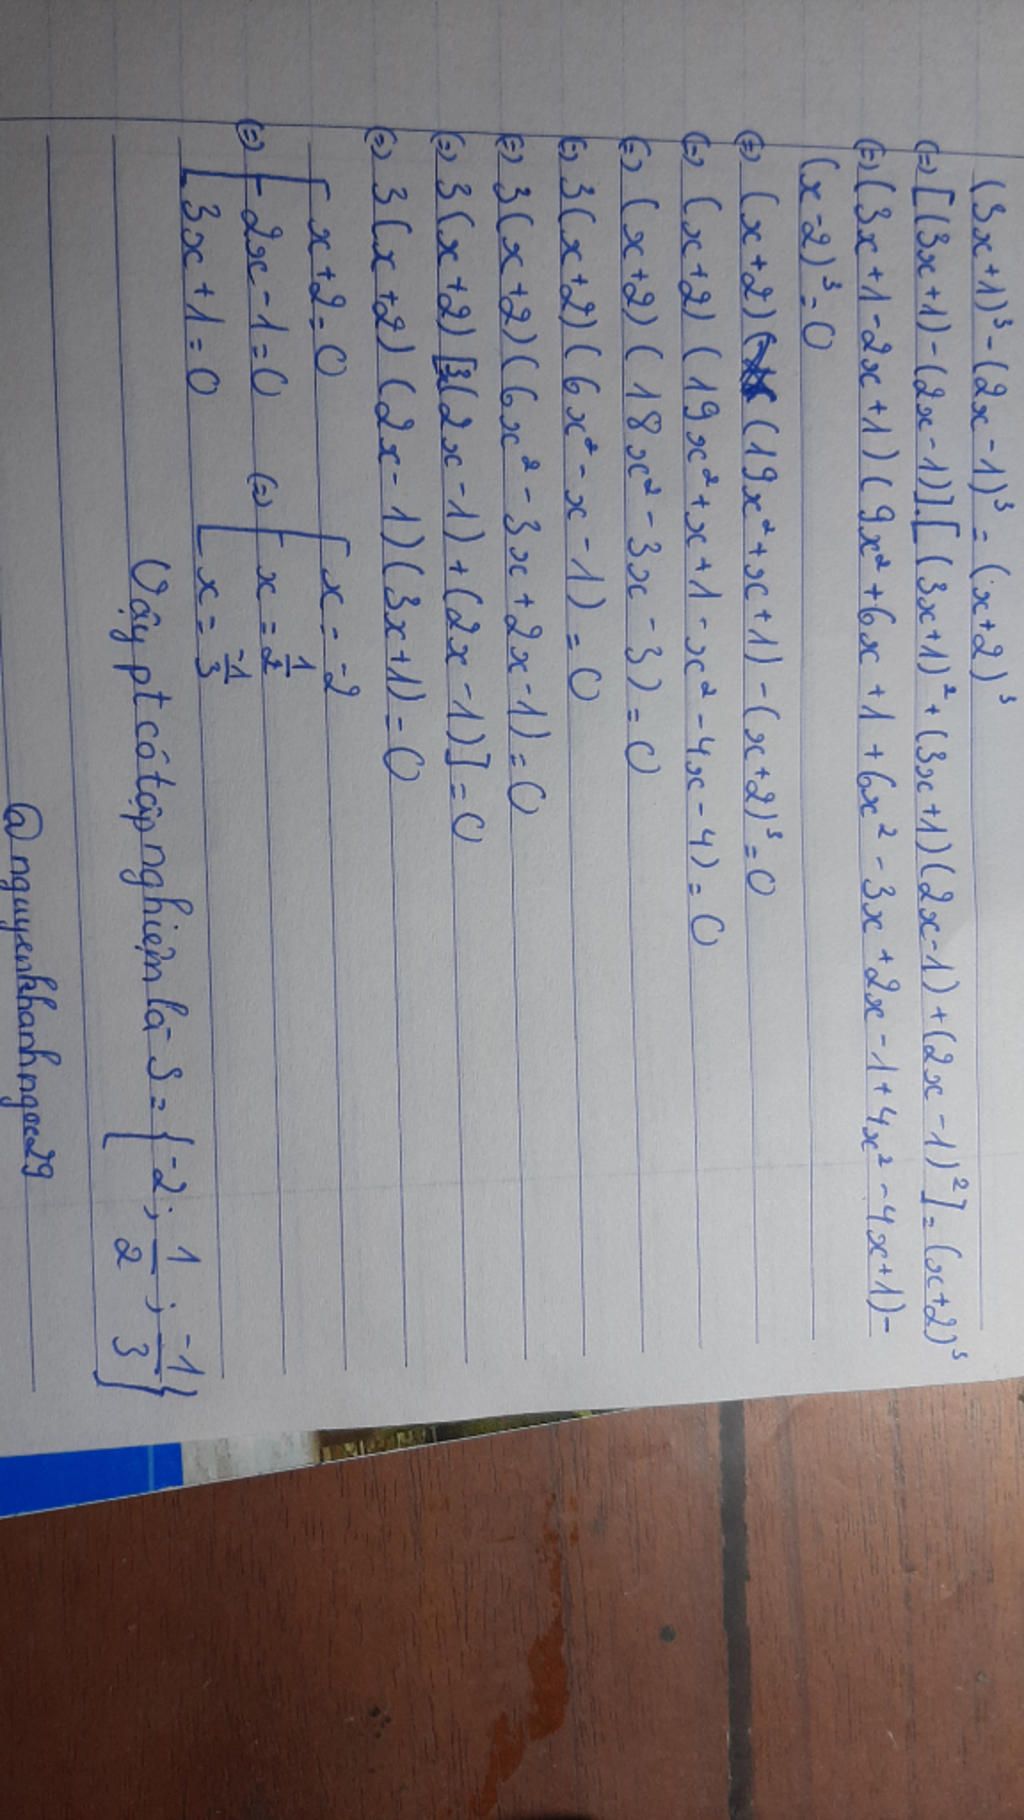 (3x+1)³ - (2x-1)³ = (x+2)³
(=) [(3x+1)-(2x-1)].[(3x+1)²+(3x+1)(2x-1)+(2x-1)²] = (x+2)³
(=) (3x+1-2x+1)(9x²+6x+1+6x²-3x+2x-1+4x²-4x+1)-
(x-2)³=0
(=) (x+2)(19x²+x+1)-(x+2)³=0
(=) (x+2)(19x²+x+1-x²-4x-4)=0
(=) (x+2)(18x²-3x-3)=0
(=) 3(x+2)(6x²-x-1)=0
(=) 3(x+2)(6x²-3x+2x-1)=0
(=) 3(x+2)[3(2x-1)+(2x-1)]=0
(=) 3(x+2)(2x-1)(3x+1)=0
[x+2=0 [x=-2
(=) [2x-1=0 (=) [x=1/2
[3x+1=0 [x=-1/3
Vậy pt có tập nghiệm là S={-2; 1/2; -1/3}
@nguyenkhanhngoc29